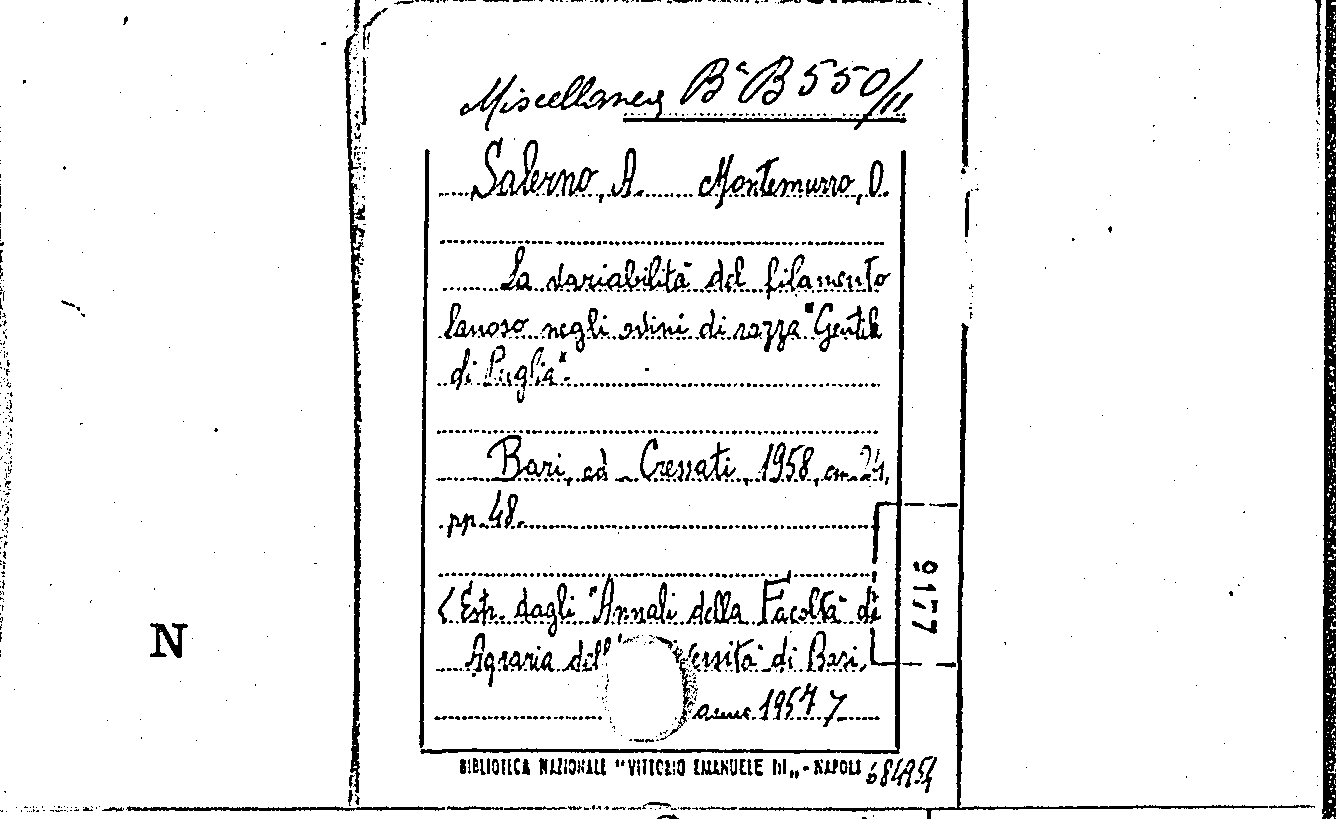 Miscellanea Bª B 550/11
Salerno, A. Montemurro, O.
La variabilità del filamento
lanoso negli ovini di razza "Gentile
di Puglia".
Bari, ed. Cressati, 1958, cm. 24,
pp. 48.
9177
< Estr. dagli "Annali della Facoltà di
Agraria dell' ersità di Bari,
anno 1957 >
N
BIBLIOTECA NAZIONALE "VITTORIO EMANUELE III„ - NAPOLI